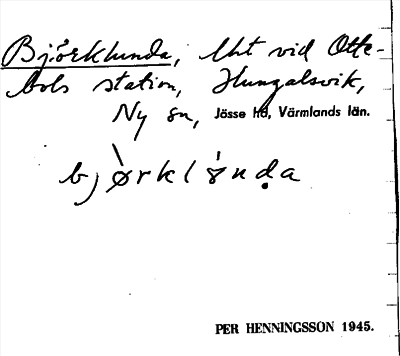 Björklunda, lht vid Otte-
bols station, Hungalsvik,
Ny sn, Jösse hd, Värmlands län.
bj̀ørkl󠀠ós̈nḍa
PER HENNINGSSON 1945.